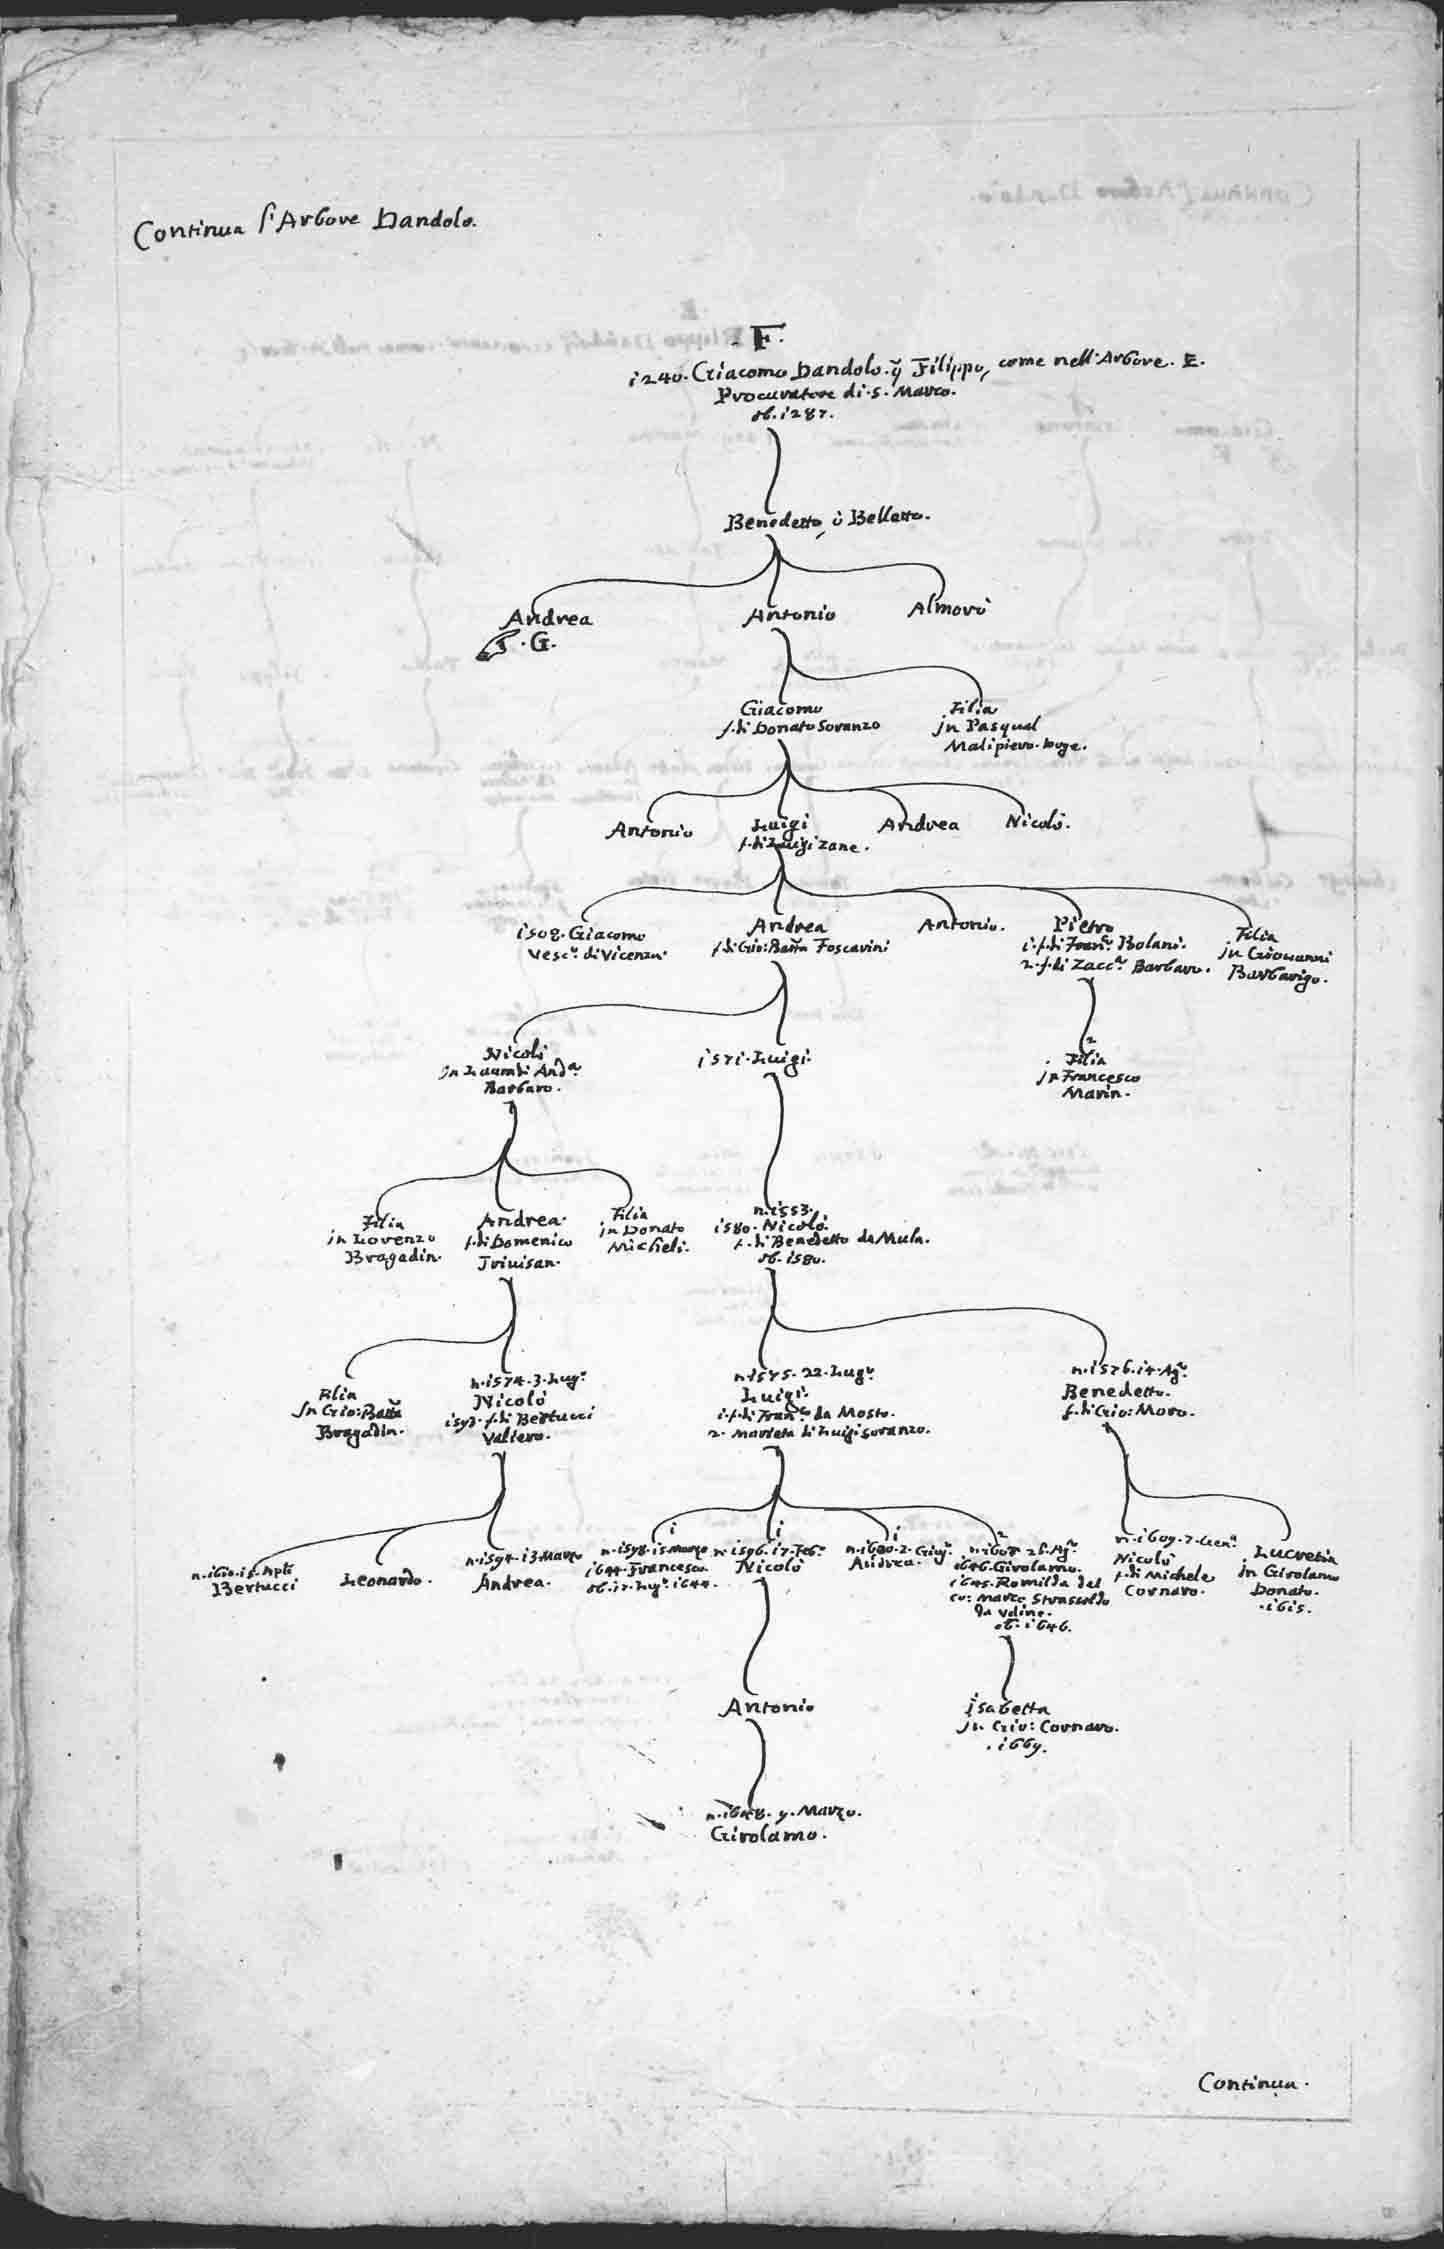 Continua l'Arbore Dandolo.
F.
1240. Giacomo Dandolo. q̃ Filippo, come nell'Arbore. E.
Procuratore di S. Marco.
ob. 1287.
Benedetto, ò Belletto.
Andrea
G.
Antonio
Almorò
Giacomo
f. di Donato Soranzo
Filia
jn Pasqual
Malipiero. Doge.
Antonio
Luigi
f. di Luigi Zane.
Andrea
Nicolò.
1508. Giacomo
Vesc.º di Vicenza.
Andrea
f. di Gio: Batta Foscarini
Antonio.
Pietro
1. f. di Fran.º Bolani.
2. f. di Zacc.ª Barbaro.
Filia
jn Giovanni
Barbarigo.
Nicolò
And.ª
Barbaro.
1571. Luigi.
2
Filia
jn Francesco
Marin.
Filia
jn Lorenzo
Bragadin.
Andrea.
f. di Domenico
Trivisan.
Filia
jn Donato
Micheli.
n. 1553.
1580. Nicolò.
f. di Benedetto da Mula.
ob. 1580.
Filia
jn Gio: Batta
Bragadin.
n. 1574. 3. Lug.º
Nicolò
1593. f. di Bertucci
Valiero.
n. 1575. 22. Lug.º
Luigi.
1. f. di Fran.º da Mosto.
2. Marieta di Luigi Soranzo.
n. 1576. 14. Ag.º
Benedetto.
f. di Gio: Moro.
n. 1610. 15. Aple
Bertucci
Leonardo.
n. 1594. 13 Marzo
Andrea.
1
n. 1598. 15 Marzo
1644. Francesco.
ob. 17. Lug.º 1644.
1
n. 1596. 17. Feb.º
Nicolò
1
n. 1600. 2. Giug.º
Andrea.
2
n. 1608. 28. Ag.º
1646. Girolamo.
1645. Romilda del
co: Marco Strassoldo
da Udine.
ob. 1646.
n. 1609. 7. Gen.º
Nicolò
f. di Michele
Cornaro.
Lucretia
jn Girolamo
Donato.
1615.
Antonio
Isabetta
jn Gio: Cornaro.
1669.
n. 1648. 9. Marzo.
Girolamo.
Continua.